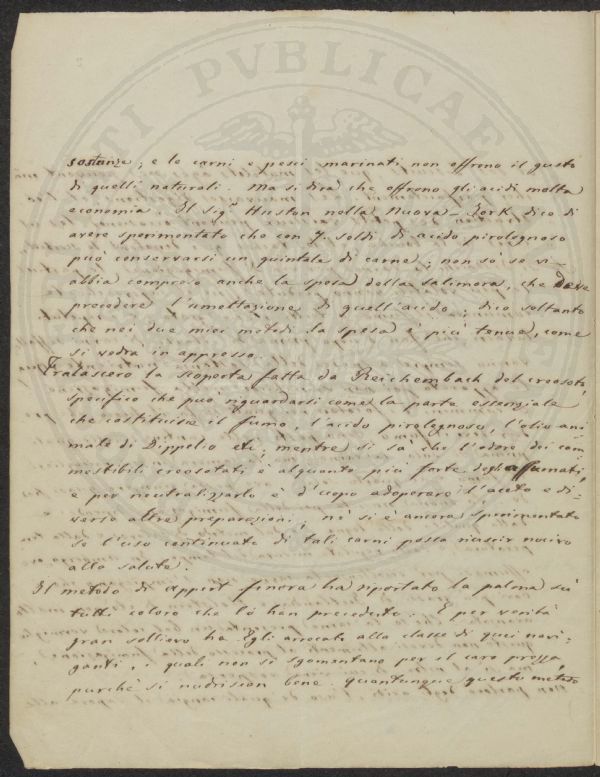 sostanze; e le carni e pesci marinati non offrono il gusto
di quelli naturali. Ma si dirà che offrono gli acidi molta
economia. Il Sigr Huston nella Nuova-Jork dice di
avere sperimentato che con 7. soldi di acido pirolegnoso
può conservarsi un quintale di carne; non sò se vi
abbia compreso anche la spesa della salimora, che deve
precedere l'umettazione di quell'acido; dico soltanto
che nei due miei metodi la spesa è più tenue, come
si vedrà in appresso.
Tralascerò la scoperta fatta da Reichembach del creosoto,
specifico che può riguardarsi come la parte essenziale
che costituisce il fumo, l'acido pirolegnoso, l'olio ani-
male di Dippelio etc, mentre si sà che l'odore dei com-
mestibili creosotati è alquanto più forte degli affumati,
e per neutralizzarlo è d'uopo adoperare l'aceto e di-
verse altre preparazioni; nè si è ancora sperimentato
se l'uso continuato di tali carni possa riuscir nocivo
alla salute.
Il metodo di Appert finora ha riportato la palma sù
tutti coloro che lo han preceduto. E per verità
gran sollievo ha Egli arrecato alla classe di quei navi-
ganti, i quali non si sgomentano per il caro prezzo,
purchè si nudriscan bene. Quantunque questo metodo
PVBLICAE